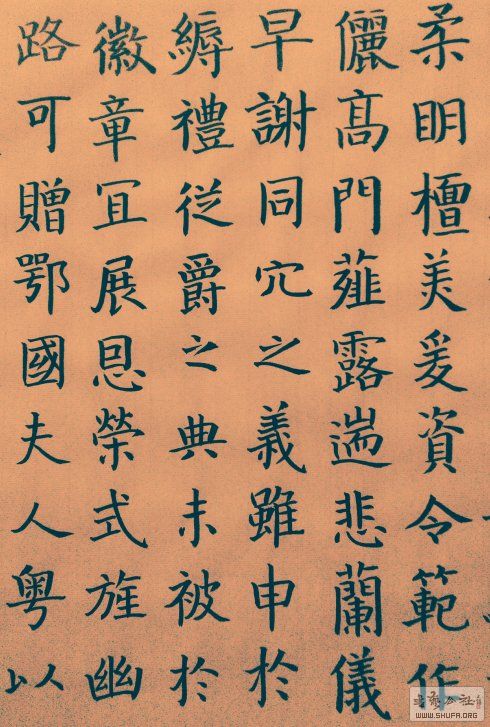 柔眀檀美爰資令範作
儷髙門薤露遄悲蘭儀
早謝同穴之義雖申於
縟禮從爵之典未被於
徽章冝展㤙榮式旌幽
路可贈鄂國夫人粤以
WWW.SHUFA.ORG